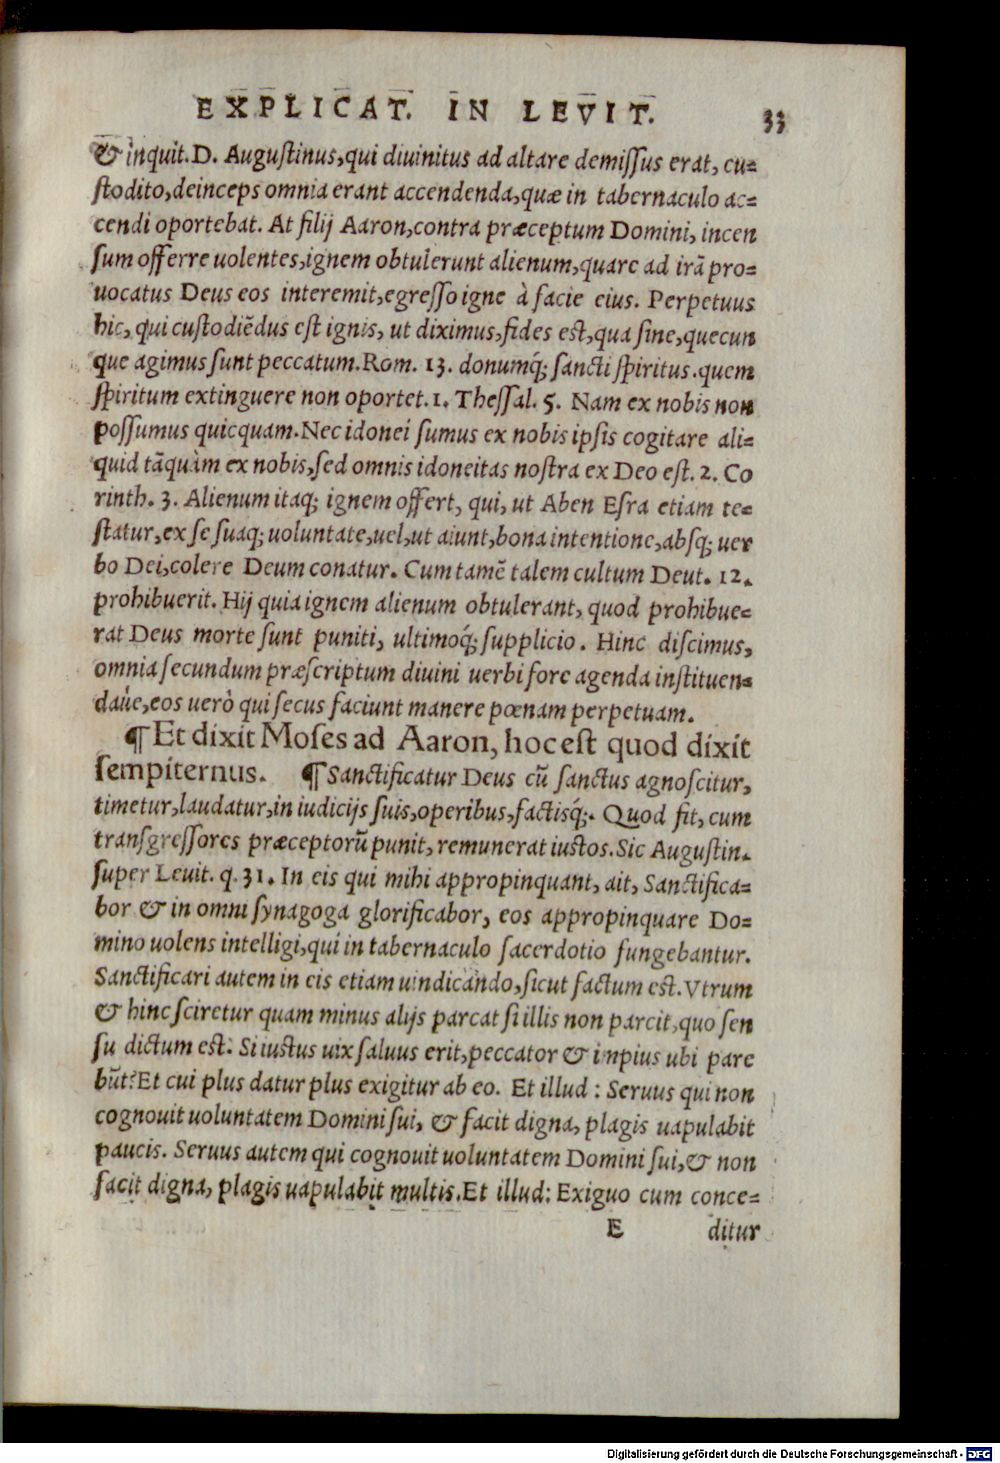 EXPLICAT. IN LEVIT. 33
& inquit. D. Auguſtinus, qui diuinitus ad altare demiſſus erat, cu=
ſtodito, deinceps omnia erant accendenda, quæ in tabernaculo ac=
cendi oportebat. At filij Aaron, contra præceptum Domini, incen
ſum offerre uolentes, ignem obtulerunt alienum, quare ad irā pro=
uocatus Deus eos interemit, egreſſo igne à facie eius. Perpetuus
hic, qui cuſtodiēdus eſt ignis, ut diximus, fides eſt, qua ſine, quecun
que agimus ſunt peccatum. Rom. 13. donumq́; ſancti ſpiritus. quem
ſpiritum extinguere non oportet. 1. Theſſal. 5. Nam ex nobis non
poſſumus quicquam. Nec idonei ſumus ex nobis ipſis cogitare ali=
quid tāquàm ex nobis, ſed omnis idoneitas noſtra ex Deo eſt. 2. Co
rinth. 3. Alienum itaq; ignem offert, qui, ut Aben Eſra etiam te=
ſtatur, ex ſe ſuaq; uoluntate, uel, ut aiunt, bona intentione, abſq; uer
bo Dei, colere Deum conatur. Cum tamē talem cultum Deut. 12.
prohibuerit. Hij quia ignem alienum obtulerant, quod prohibue=
rat Deus morte ſunt puniti, ultimoq́; ſupplicio. Hinc diſcimus,
omnia ſecundum præſcriptum diuini uerbi fore agenda inſtituen=
daúe, eos uerò qui ſecus faciunt manere pœnam perpetuam.
¶ Et dixit Moſes ad Aaron, hoc eſt quod dixit
ſempiternus. ¶ Sanctificatur Deus cū ſanctus agnoſcitur,
timetur, laudatur, in iudicijs ſuis, operibus, factisq́;. Quod fit, cum
tranſgreſſores præceptorū punit, remunerat iuſtos. Sic Auguſtin.
ſuper Leuit. q. 31. In eis qui mihi appropinquant, ait, Sanctifica=
bor & in omni ſynagoga glorificabor, eos appropinquare Do=
mino uolens intelligi, qui in tabernaculo ſacerdotio fungebantur.
Sanctificari autem in eis etiam uindicando, ſicut factum eſt. Vtrum
& hinc ſciretur quam minus alijs parcat ſi illis non parcit, quo ſen
ſu dictum eſt. Si iuſtus uix ſaluus erit, peccator & inpius ubi pare
būt? Et cui plus datur plus exigitur ab eo. Et illud: Seruus qui non
cognouit uoluntatem Domini ſui, & facit digna, plagis uapulabit
paucis. Seruus autem qui cognouit uoluntatem Domini ſui, & non
facit digna, plagis uapulabit multis. Et illud: Exiguo cum conce=
E ditur
Digitalisierung gefördert durch die Deutsche Forschungsgemeinschaft - DFG